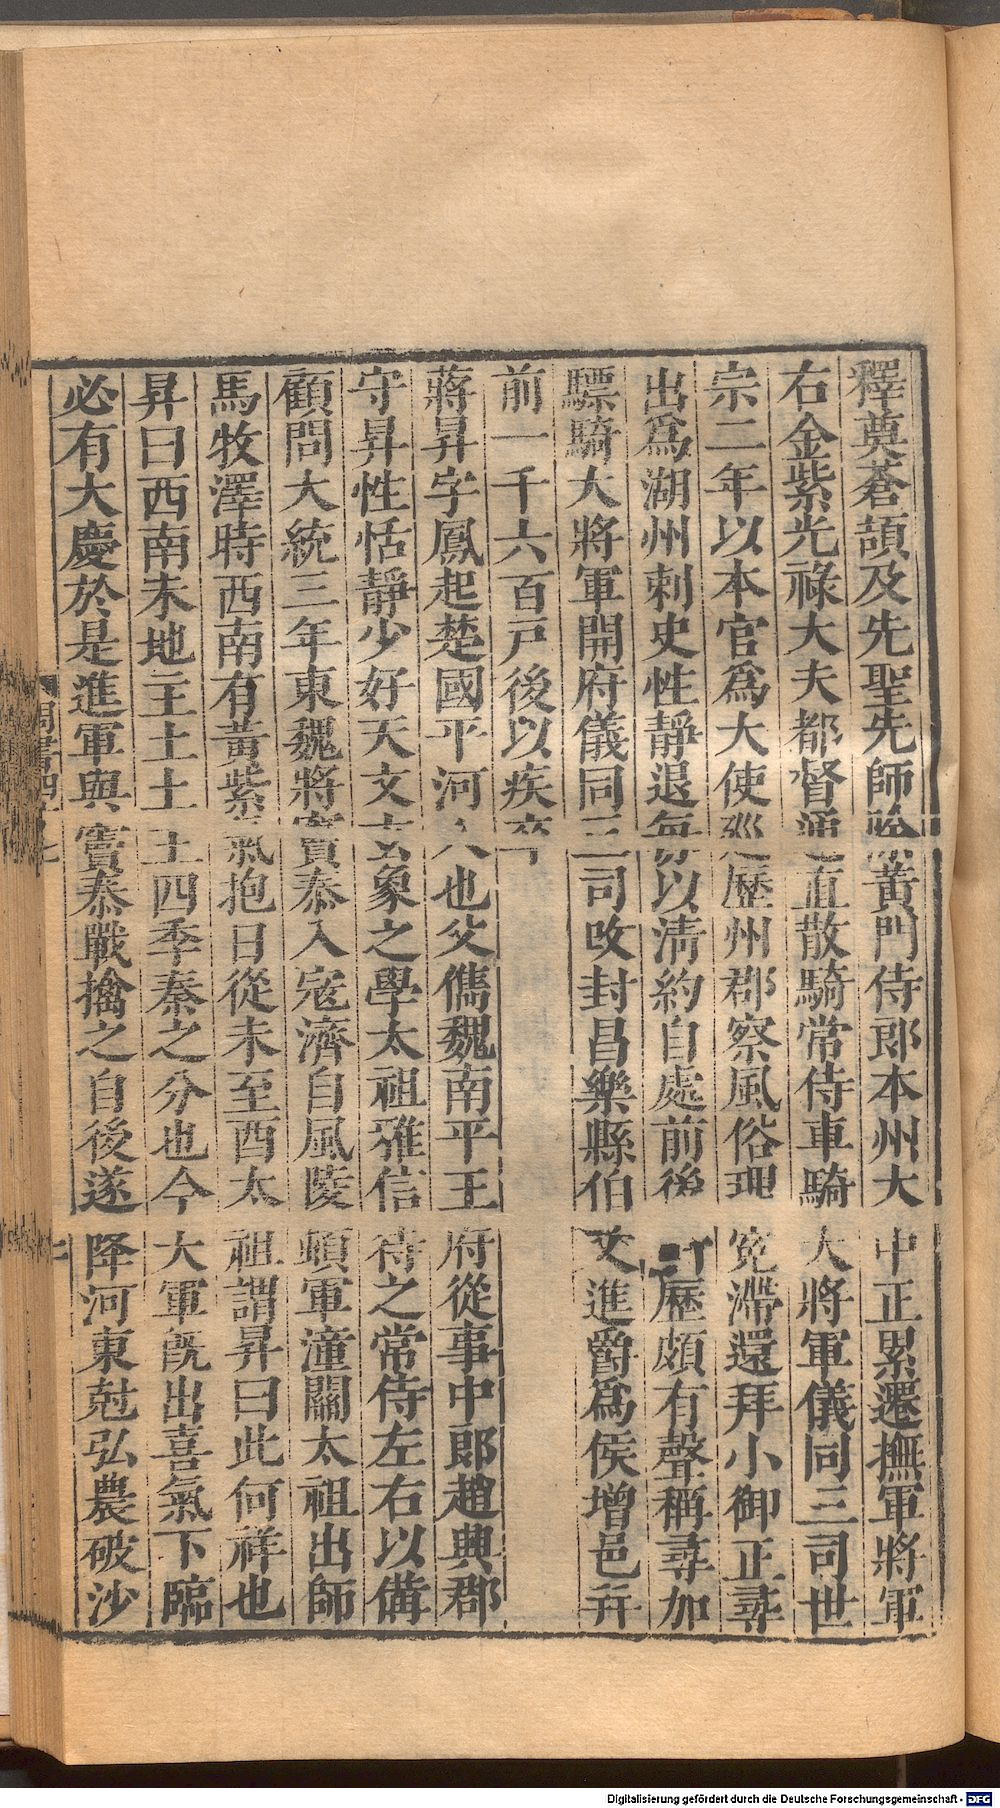 釋奠蒼頡及先聖先師除黃門侍郎本州大中正累遷撫軍將軍
右金紫光祿大夫都督通直散騎常侍車騎大將軍儀同三司世
宗二年以本官爲大使巡歷州郡察風俗理寃滯還拜小御正尋
出爲湖州刺史性靜退每以清約自處前後所歷頗有聲稱尋加
驃騎大將軍開府儀同三司改封昌樂縣伯又進爵爲侯增邑并
前一千六百戸後以疾卒
蔣昇字鳳起楚國平河人也父儁魏南平王府從事中郎趙興郡
守昇性恬靜少好天文玄象之學太祖雅信待之常侍左右以備
顧問大統三年東魏將竇泰入寇濟自風陵頓軍潼關太祖出師
馬牧澤時西南有黃紫氣抱日從未至酉太祖謂昇曰此何祥也
昇曰西南未地主土土王四季秦之分也今大軍旣出喜氣下臨
必有大慶於是進軍與竇泰戰擒之自後遂降河東尅弘農破沙
周書四十七
Digitalisierung gefördert durch die Deutsche Forschungsgemeinschaft - DFG